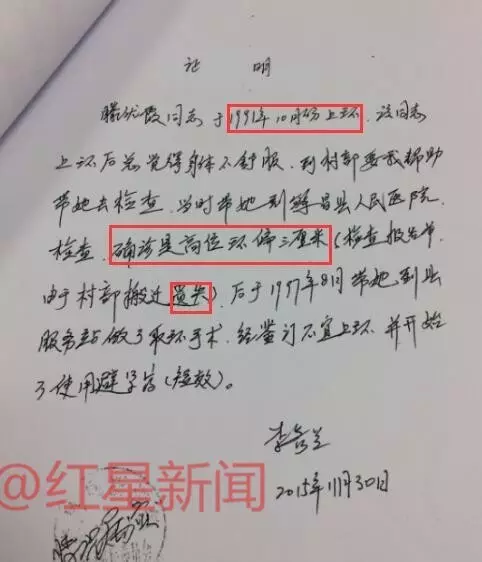 证 明
同志于1991年10月份上环.该同志
上环后总觉得身体不舒服.到村部要我帮助
带她去检查.当时带她到县人民医院
检查.确诊是高位环偏三厘米(检查报告单
由于村部搬迁遗失).后于1997年8月带她到县
服务站做了取环手术.经鉴订不宜上环.并开始
了使用避孕药(短效)。
李兰
2015年11月30日
@红星新闻